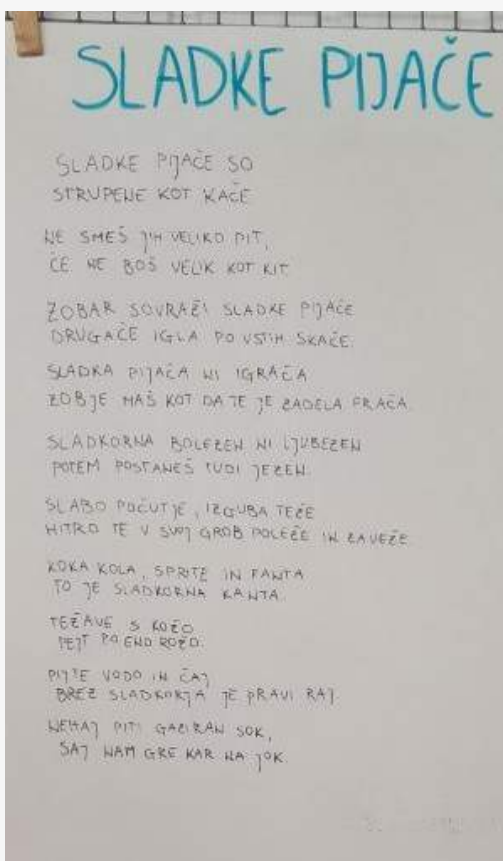 SLADKE PIJAČE
SLADKE PIJAČE SO
STRUPENE KOT KAČE
NE SMEŠ JIH VELIKO PIT,
ČE NE BOŠ VELIK KOT KIT
ZOBAR SOVRAŽI SLADKE PIJAČE
DRUGAČE IGLA PO USTIH SKAČE.
SLADKA PIJAČA NI IGRAČA
ZOBJE MAŠ KOT DA TE JE ZADELA FRAČA.
SLADKORNA BOLEZEN NI LJUBEZEN
POTEM POSTANEŠ TUDI JEZEN.
SLABO POČUTJE, IZGUBA TEŽE
HITRO TE V SVOJ GROB POLEŽE IN ZAVEŽE.
KOKA KOLA, SPRITE IN FANTA
TO JE SLADKORNA KANTA.
TEŽAVE S KOŽO
PEJT PO ENO ROŽO.
PIJTE VODO IN ČAJ
BREZ SLADKORJA JE PRAVI RAJ.
NEHAJ PITI GAZIRAN SOK,
SAJ NAM GRE KAR NA JOK.